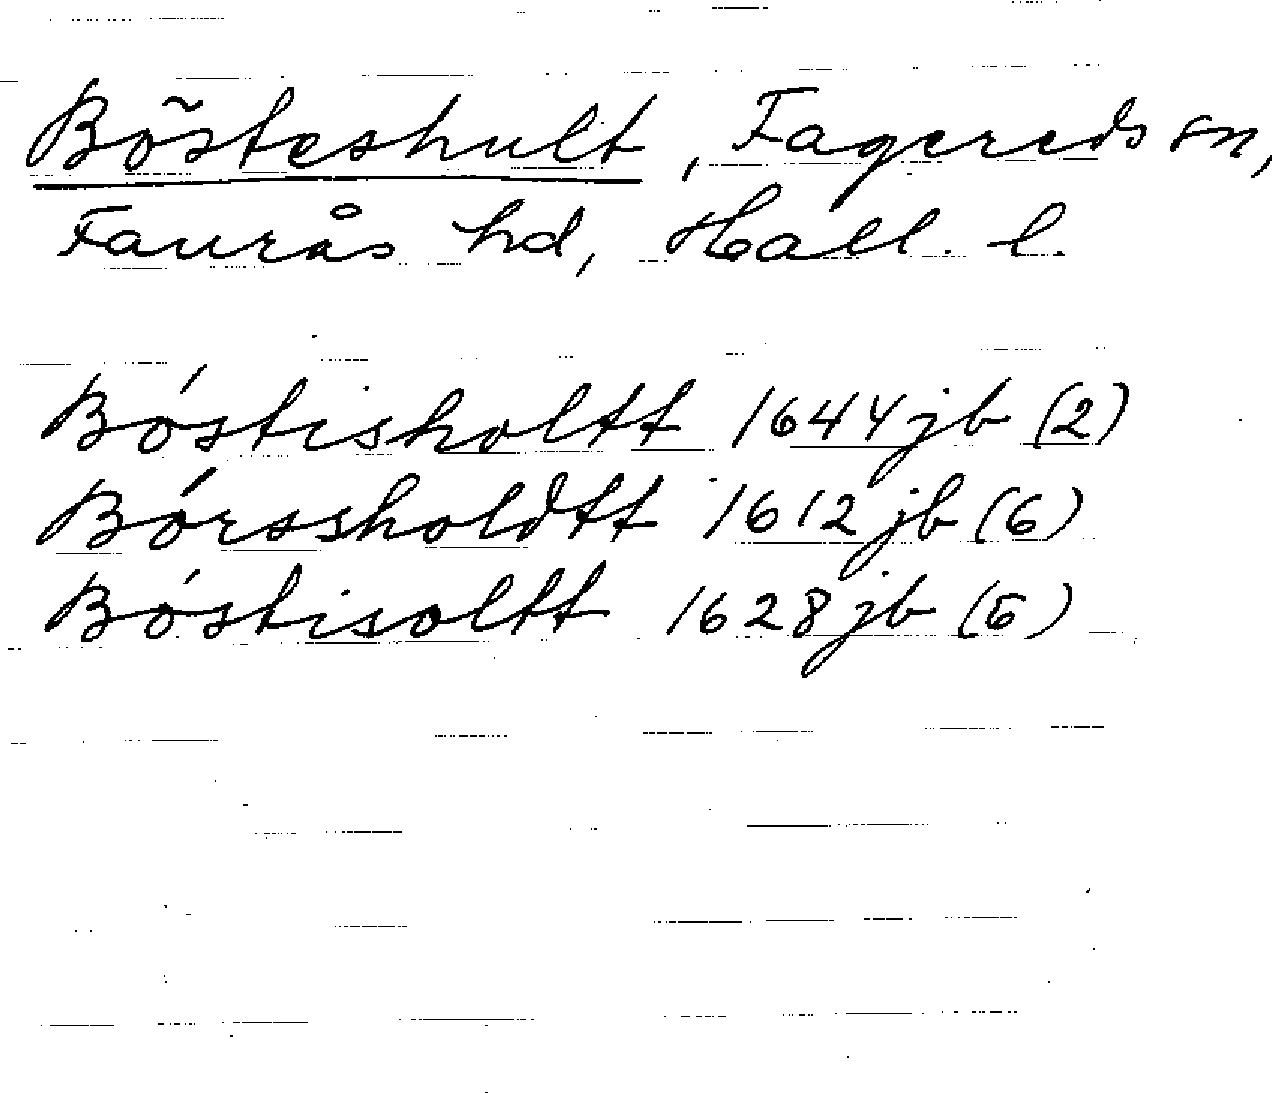 Bösteshult, Fagereds sn,
Faurås hd, Hall. l.
Bóstisholtt 1644 jb (2)
Bórssholdtt 1612 jb (6)
Bóstisoltt 1628 jb (5)